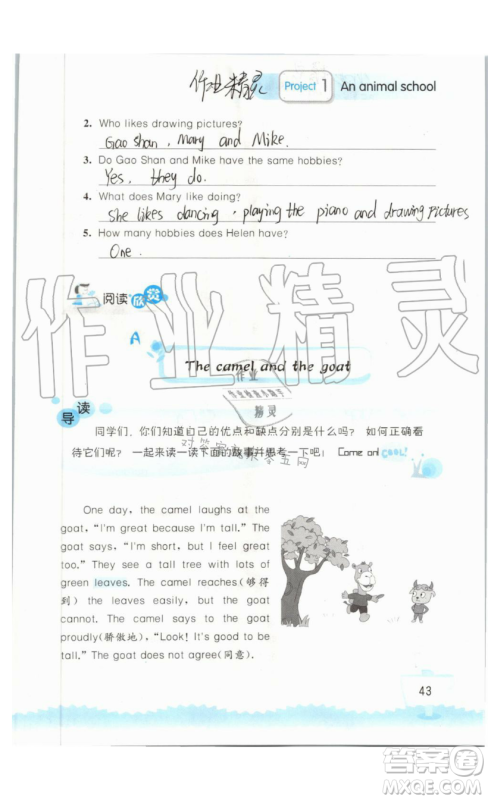 作业精灵 Project 1 An animal school
2. Who likes drawing pictures?
Gao shan, Mary and Mike.
3. Do Gao Shan and Mike have the same hobbies?
Yes, they do.
4. What does Mary like doing?
She likes dancing, playing the piano and drawing Pictures
5. How many hobbies does Helen have?
One.
阅读欣赏
作业精灵
A
The camel and the goat
作业
精灵
导读
同学们，你们知道自己的优点和缺点分别是什么吗？ 如何正确看
待它们呢？ 一起来读一读下面的故事并思考一下吧！ Come on! COOL!
One day, the camel laughs at the
goat, “I'm great because I'm tall.” The
goat says, “I'm short, but I feel great
too.” They see a tall tree with lots of
green leaves. The camel reaches(够得
到) the leaves easily, but the goat
cannot. The camel says to the goat
proudly(骄傲地), “Look! It's good to be
tall.” The goat does not agree(同意).
43
答案圈
MXQE.COM